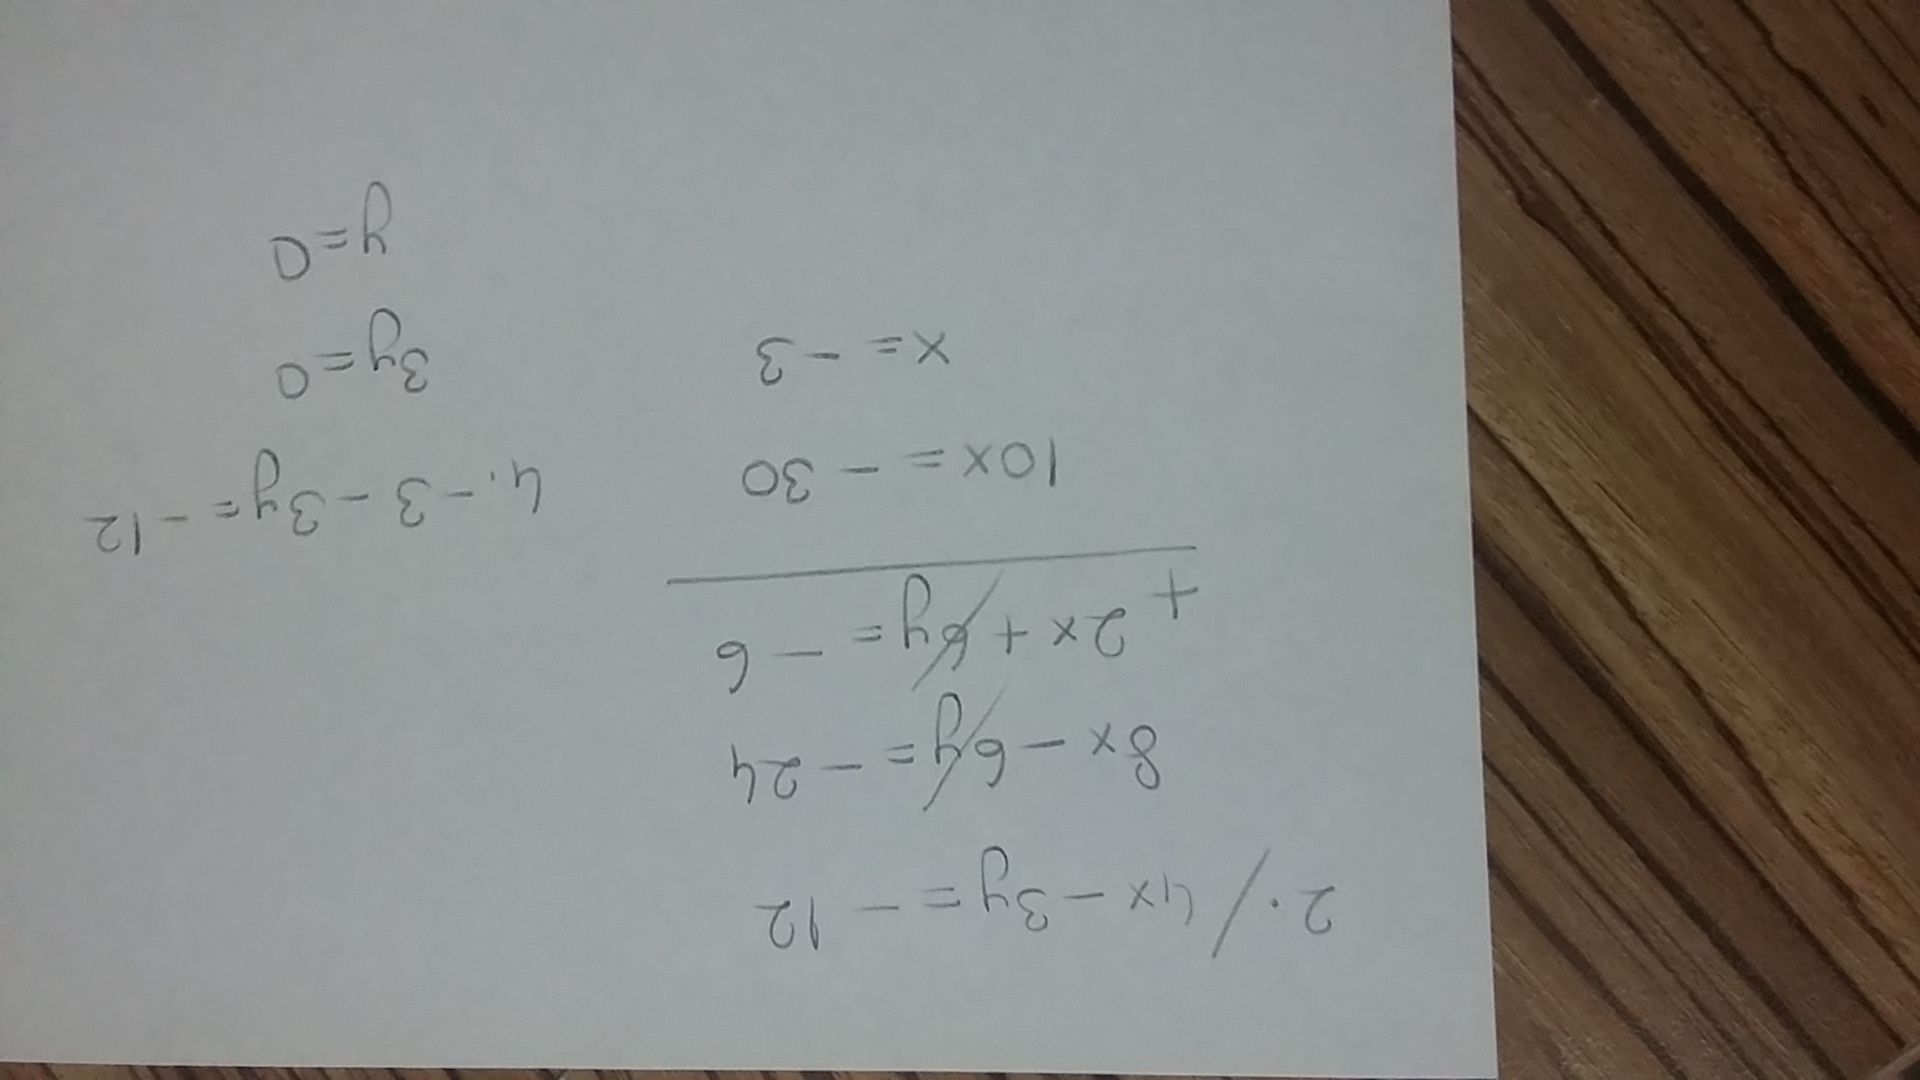 2·/4x-3y=-12
8x-6y=-24
+ 2x+6y=-6
10x=-30
x=-3
4.-3-3y=-12
3y=0
y=0